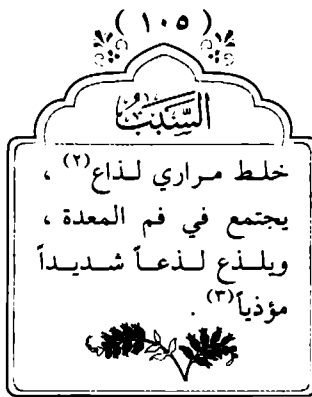 ( ١٠٥ )
السَّبَبُ
خلط مراري لذاع(٢) ،
يجتمع في فم المعدة ،
ويلذع لذعاً شديداً
مؤذياً(٣) .